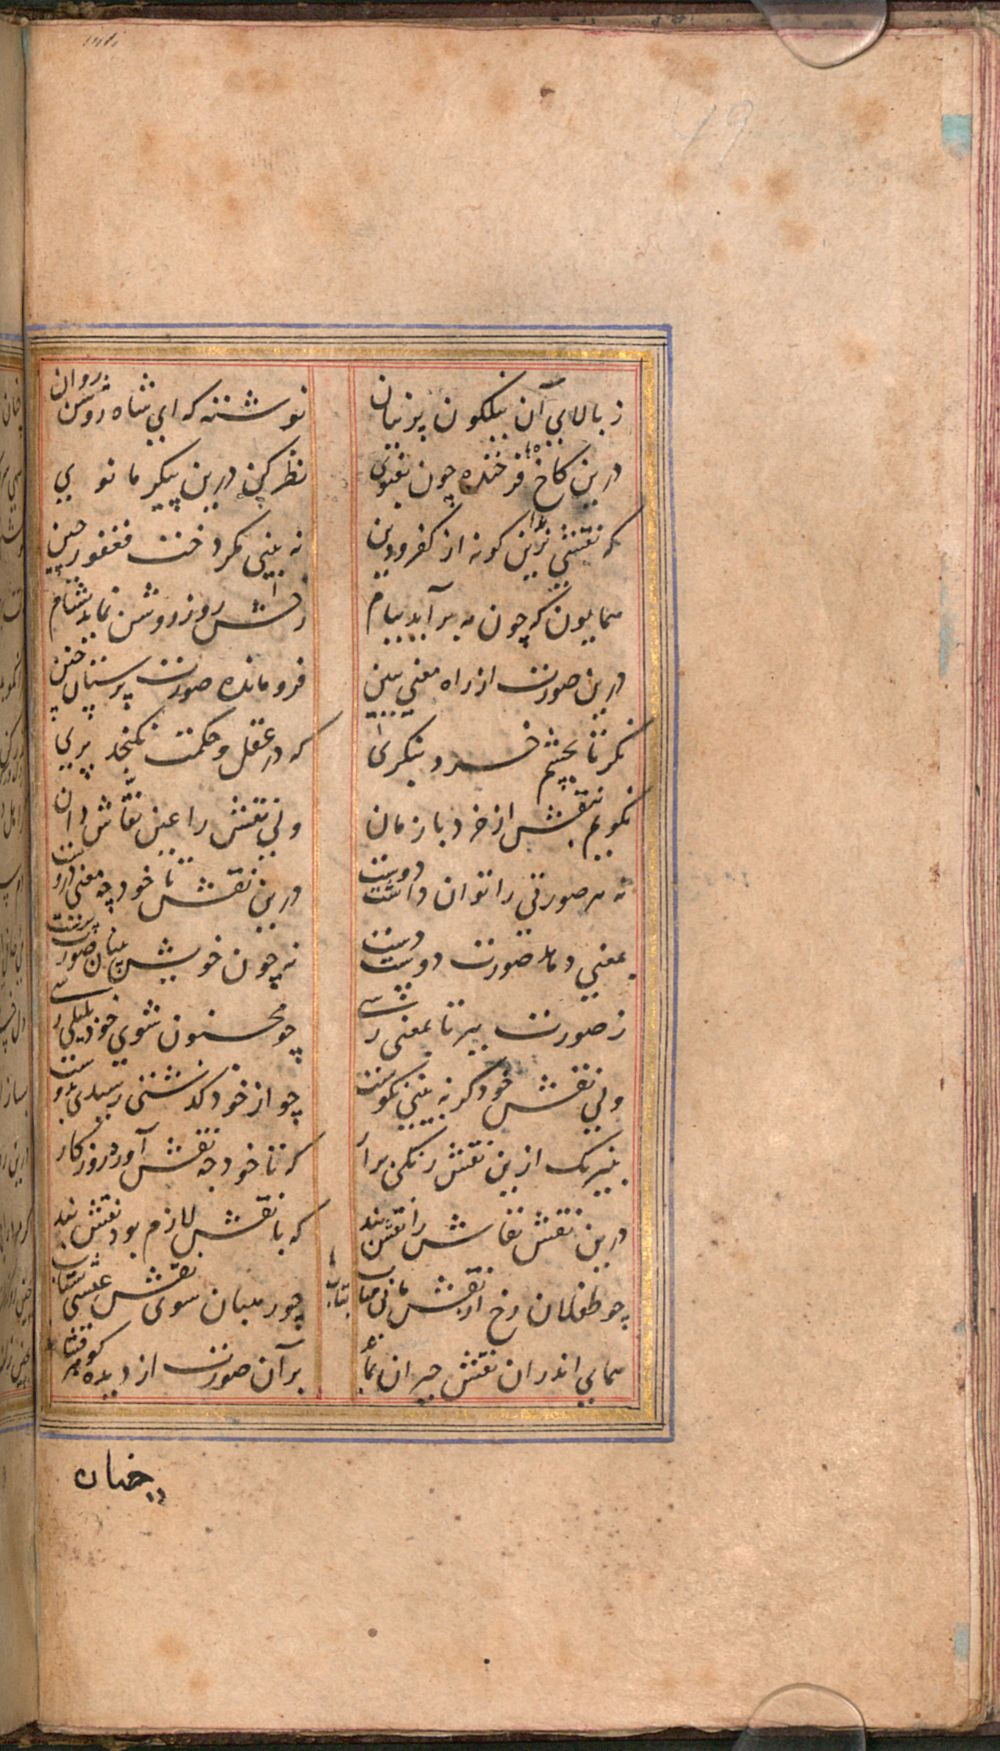 ز بالای آن نیلگون پرنیان
نوشته که ای شاه روشن روان
درین کاخ فرخنده چون بغنوی
نظر کن درین پیکر مانوی
که نقشی بدین گونه از کفر و دین
نه بینی مگر دخت فغفور چین
همایون که چون مه برآید ببام
رخش روز روشن نماید بشام
درین صورت از راه معنی ببین
فرو مانده صورت پرستان چین
نگر تا بچشم خرد بنگری
که در عقل و حکمت نگنجد پری
نگویم نقش از خرد باز مان
ولی نقش را عین نقاش دان
نه هر صورتی را توان داشت دوست
درین نقش تا خود چه معنی دروست
بمعنی دهد صورت دوست دست
نه چون خویش بینان صورت پرست
ز صورت ببر تا بمعنی رسی
چو مجنون شوی خود بلیلی رسی
ولی نقش خود گر نه بینی نکوست
چو از خود گذشتی رسیدی بدوست
بنیرنگ ازین نقش رنگی برار
که تا خود چه نقش آورد روزگار
درین نقش نقاش را نقش بند
که با نقش لازم بود نقش بند
چو طفلان رخ از نقش مانی متاب
چو رهبان سوی نقش عیسی شتاب
بتاب
همای اندران نقش حیران بماند
بر آن صورت از دیده گوهر فشاند
چنان
49